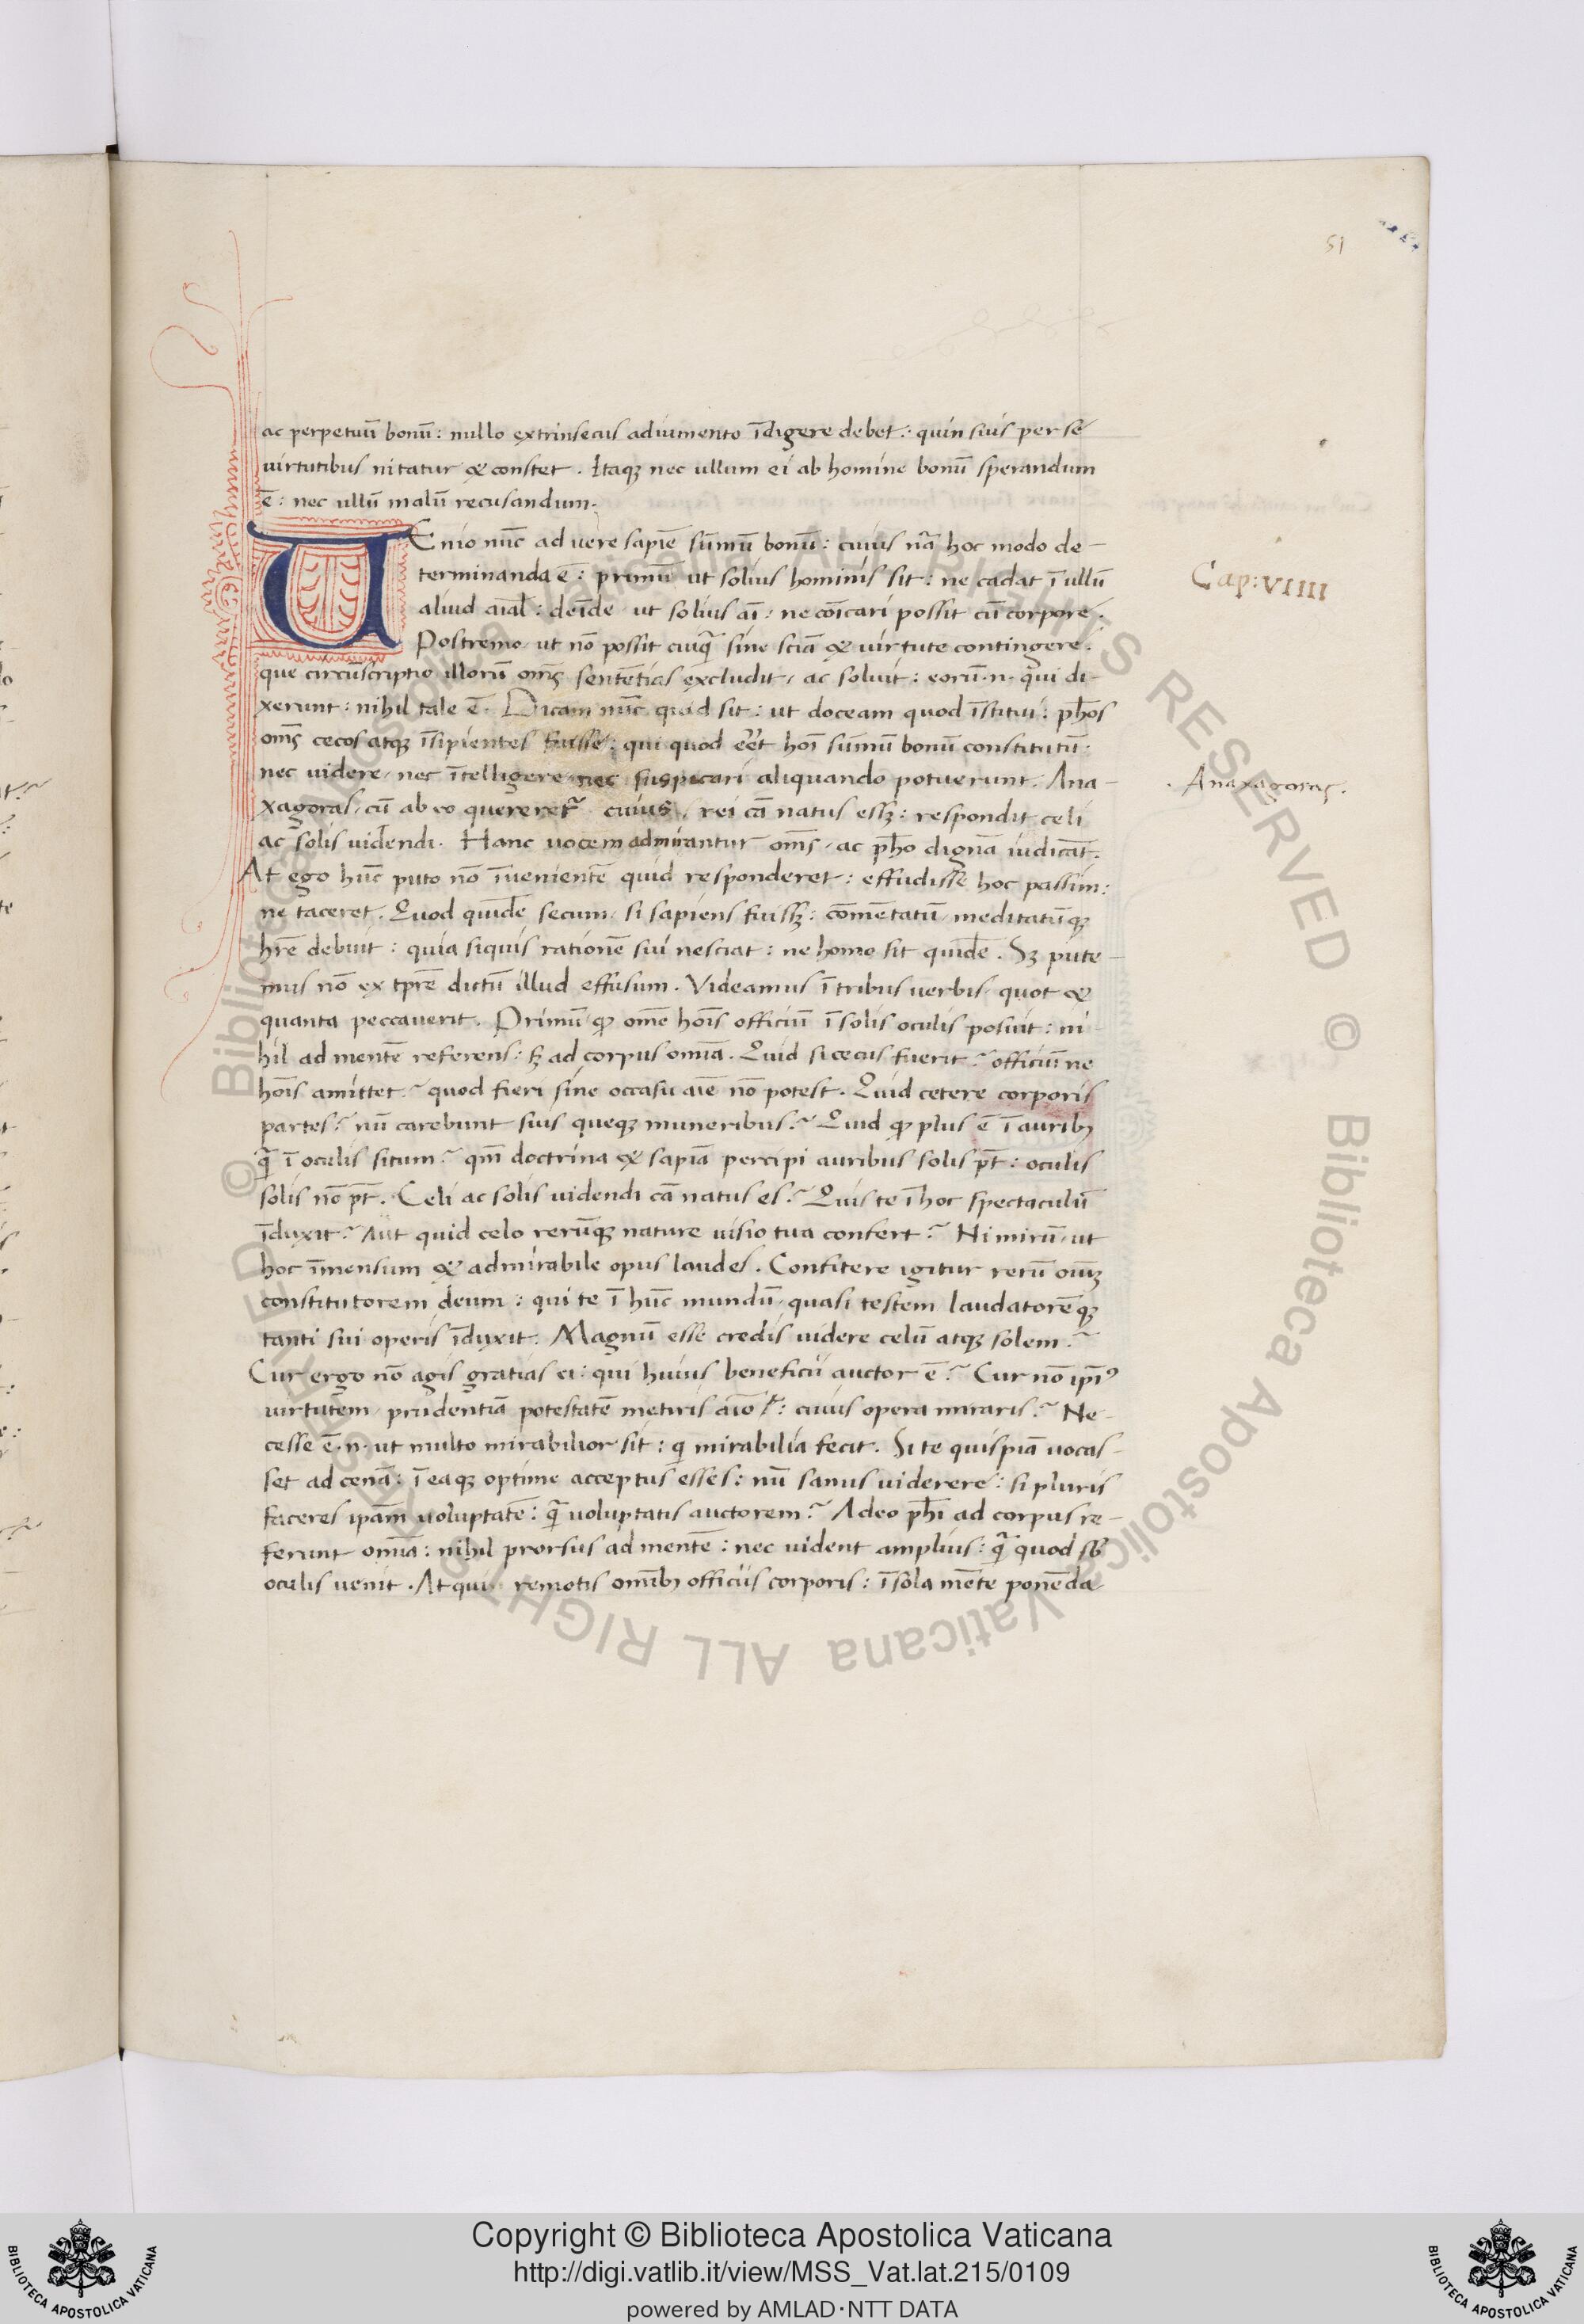 51
ac perpetuū bonū: nullo extrinsecus adiumento īdigere debet: quin suis per se
uirtutibus nitatur & constet. Itaqꝫ nec ullum ei ab homine bonū sperandum
ē: nec ullū malū recusandum.
UEnio nūc ad uere sapiē sūmū bonū: cuius nā̄ hoc modo de-
terminanda ē: primū ut solius hominis sit: ne cadat ī ullū
Cap: VIIII
aliud aīal: deīde ut solius aī: ne cōīcari possit cū corpore.
Postremo ut nō possit cuiq̄ sine sciā & uirtute contingere.
que circūscriptio illorū om̄s sentētias excludit, ac soluit: eorū .n. qui di-
xerunt: nihil tale ē. Dicam nūc quid sit: ut doceam quod īstitui: ph̄os
om̄s cecos atqꝫ īsipientes fuisse: qui quod eēt hoī sūmū bonū constitutū:
nec uidere, nec ītelligere nec suspicari aliquando potuerunt. Ana-
. Anaxagoras.
xagoras, cū ab eo quereret᷑ cuius rei cā natus essꝫ: respondit celi
ac solis uidendi. Hanc uocem admirantur om̄s, ac ph̄o dignā iudicāt.
At ego hūc puto nō īuenientē quid responderet: effudisse hoc passim:
ne taceret. Quod quidē secum, si sapiens fuissꝫ: cōmētatū, meditatūqꝫ
hr̄e debuit: quia siquis rationē sui nesciat: ne homo sit quidē. Sꝫ pute-
mus nō ex tpr̄e dictū illud effusum. Videamus ī tribus uerbis, quot &
quanta peccauerit. Primū qꝫ om̄e hoīs officiū ī solis oculis posuit: ni-
hil ad mentē referens: sꝫ ad corpus omīa. Quid si cecus fuerit? officiū ne
hoīs amittet? quod fieri sine occasu aīe nō potest. Quid cetere corporis
partes? nū carebunt suis queqꝫ muneribus? Quid qꝫ plus ē ī auribꝫ
q̄ ī oculis situm? qm̄ doctrina & sapīa percipi auribus solis pt̄: oculis
solis nō pt̄. Celi ac solis uidendi cā natus es? Quis te ī hoc spectaculū
īduxit? Aut quid celo rerūqꝫ nature uisio tua confert? Ni mirū, ut
hoc īmensum & admirabile opus laudes. Confitere igitur rerū oīuꝫ
constitutorem deum: qui te ī hūc mundū, quasi testem laudatorēqꝫ
tanti sui operis īduxit. Magnū esse credis uidere celū atqꝫ solem?
Cur ergo nō agis gratias ei: qui huius beneficii auctor ē? Cur nō ipī᾽
uirtutem, prudentiā potestatē metiris aīo: cuius opera miraris? Ne-
cesse ē .n. ut multo mirabilior sit: q mirabilia fecit. Si te quispiā uocas-
set ad cenā: ī eaqꝫ optime acceptus esses: nū sanus uiderere: si pluris
faceres ipām uoluptatē: q̄ uoluptatis auctorem? Adeo ph̄i ad corpus re-
ferunt omīa: nihil prorsus ad mentē: nec uident amplius: q̄ quod sb̄
oculis uenit. Atqui remotis omībꝫ officiis corporis: ī sola mēte ponēda
Copyright © Biblioteca Apostolica Vaticana
http://digi.vatlib.it/view/MSS_Vat.lat.215/0109
powered by AMLAD·NTT DATA